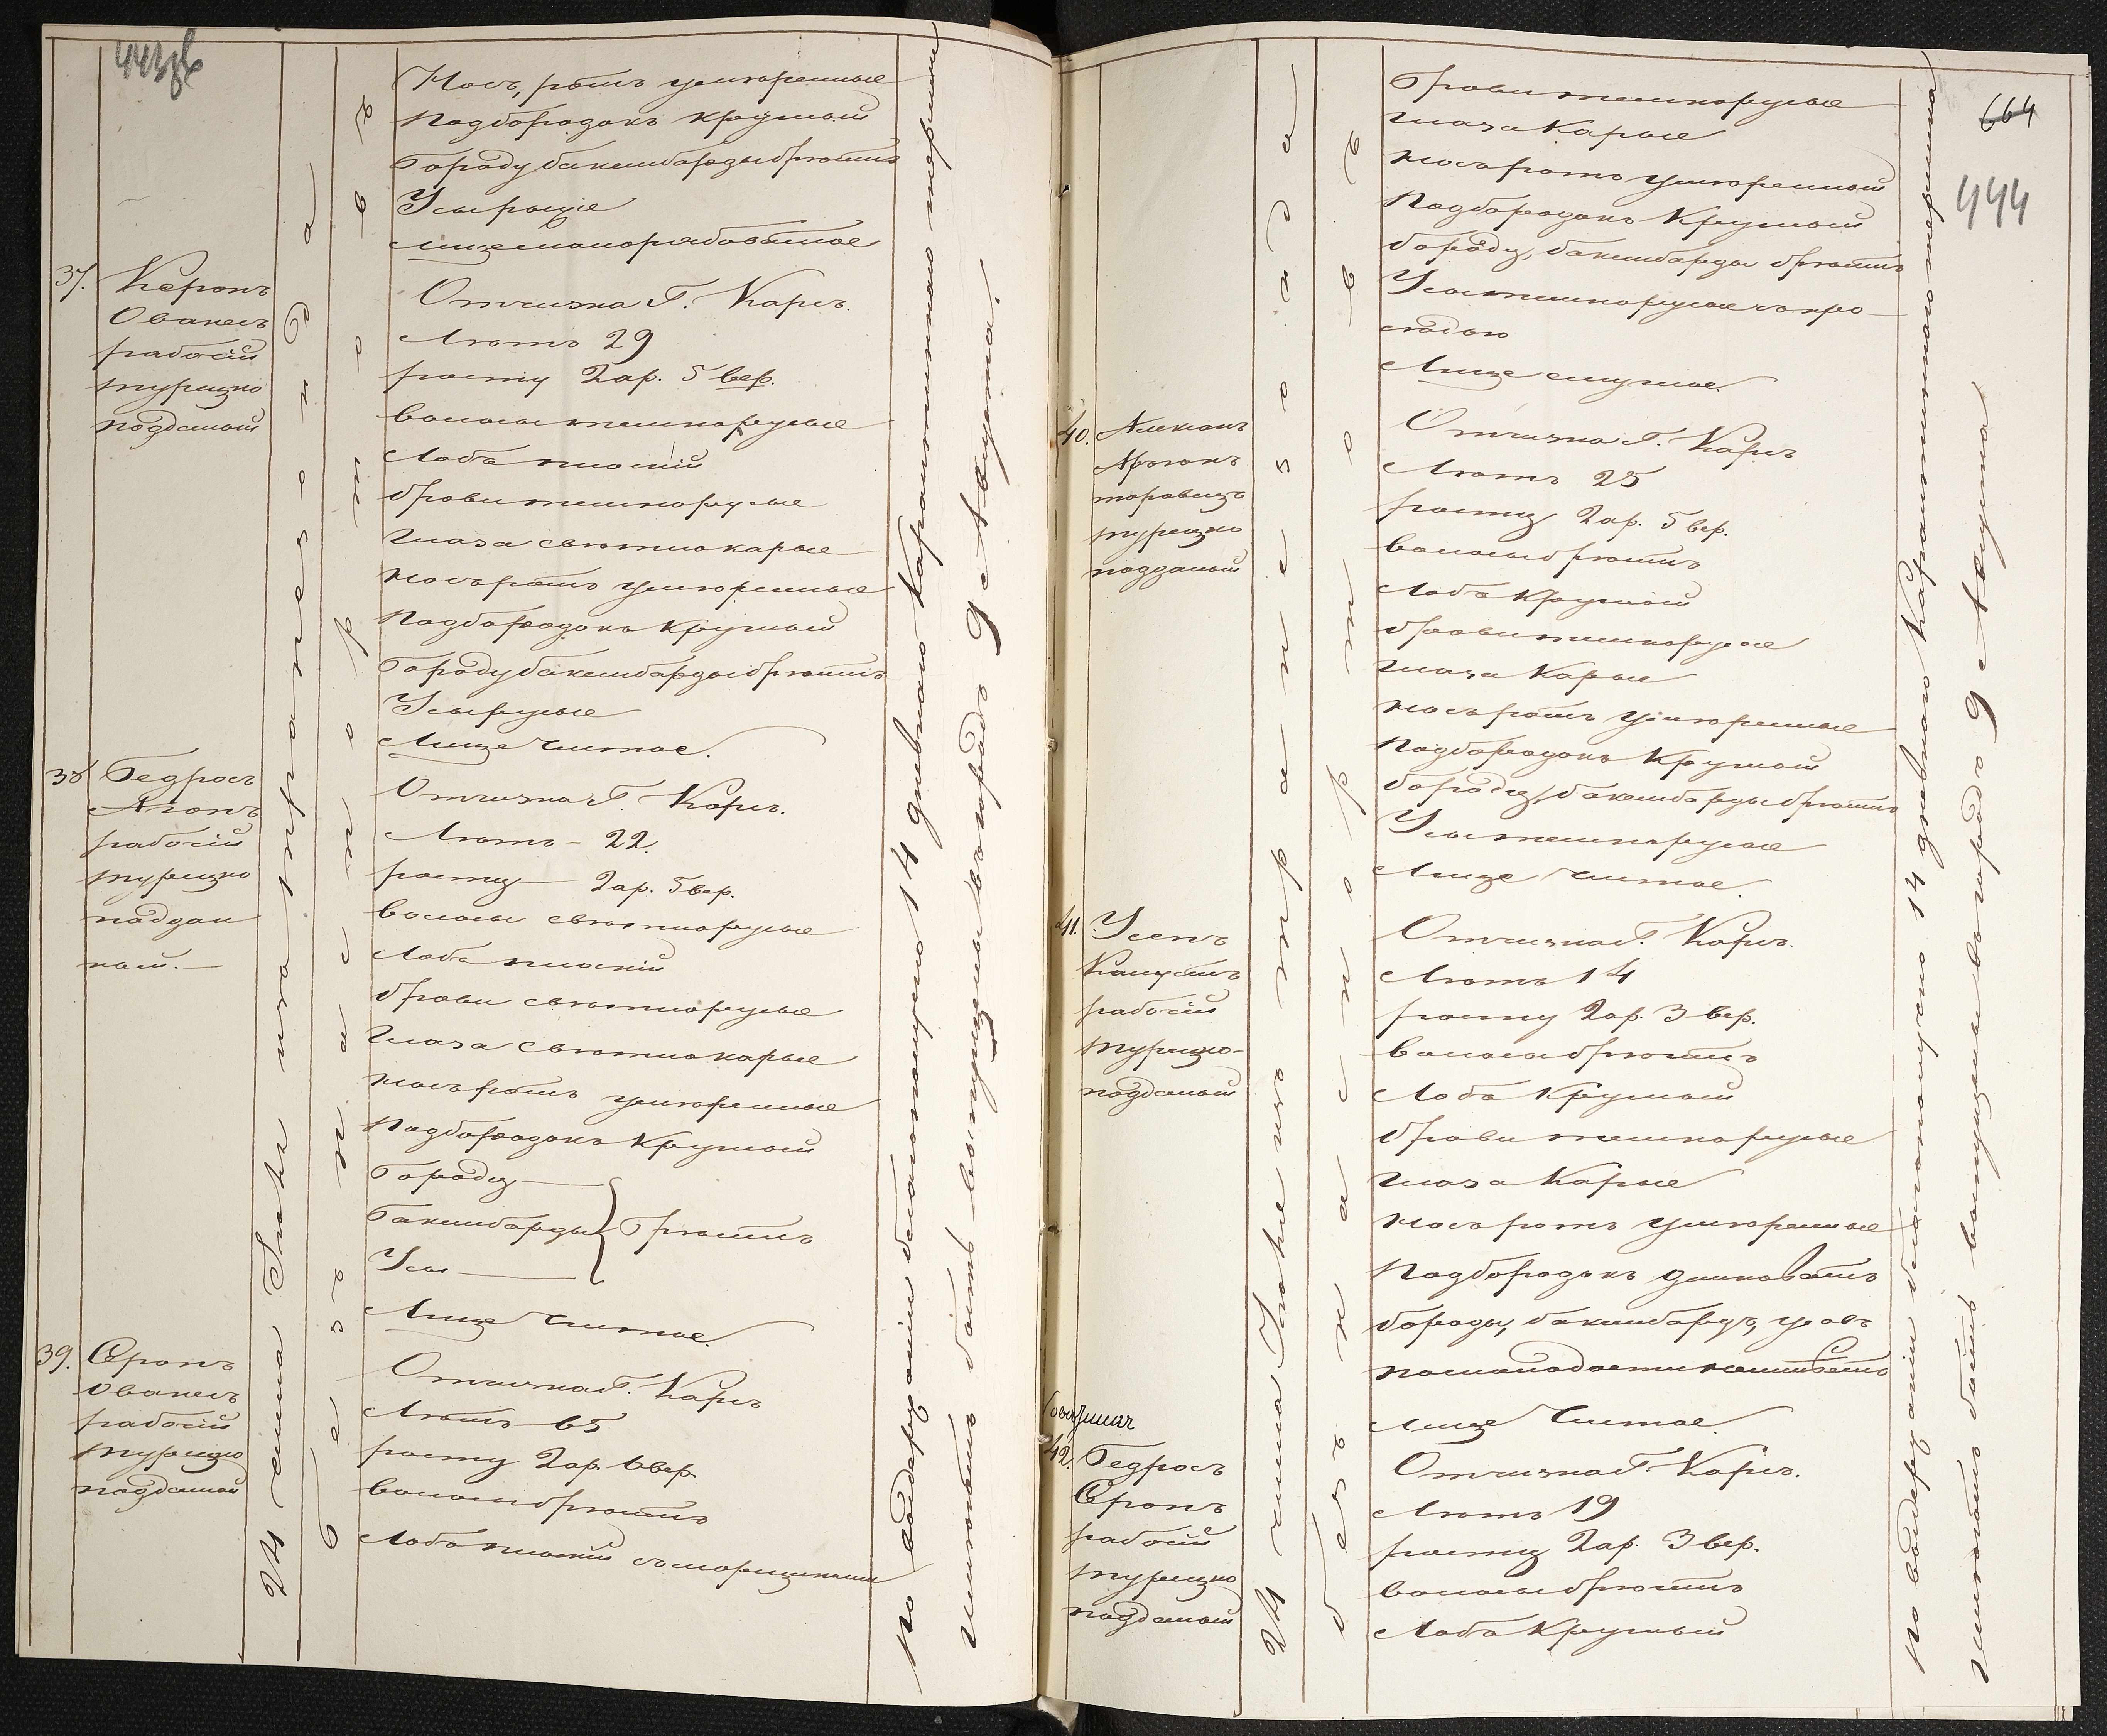 443об
Носъ, ротъ умѣренные
Подбородокъ круглый
Бороду бакенбарды брѣетъ
Усы рыжіе
Лице мало рябоватое
37.
Керопъ
Ованесъ
рабочій
турецко
подданый
Отчизна Г. Карсъ.
Лѣтъ 29
росту 2 ар. 5 вер.
волосы темнорусые
Лобъ плоскій
брови темнорусые
Глаза свѣтлокарые
Носъ ротъ умѣренные
Подбородокъ круглый
Бороду бакенбарды брѣетъ
Усы русые
Лице чистое.
38
Бедросъ
Агопъ
рабочій
турецко
поддан
ный. —
Отчизна Г. Карсъ.
Лѣтъ - 22.
росту — 2 ар. 5 вер.
волосы свѣтлорусые
Лобъ плоскій
брови свѣтлорусые
Глаза свѣтлокарые
Носъ ротъ умѣренные
Подбородокъ круглый
Бороду —
Бакенбарды } брѣетъ
Усы —
Лице чистое.
39.
Серопъ
Ованесъ
рабочій
турецко
подданый
Отчизна Г. Карсъ
Лѣтъ 65
росту 2 ар. 6 вер.
волосы брѣетъ
Лобъ плоскій съ морщинами
24 числа Іюля изъ Трапезонда
безъ паспортовъ
по содержаніи благополучно 14 дневнаго карантиннаго термина
имѣютъ быть выпущены въ городъ 9 Августа.
664
444
Брови темнорусые
Глаза Карые
Носъ ротъ умѣренный
Подбородокъ Круглый
бороду, бакенбарды брѣетъ
Усы темнорусые съ про-
сѣдью
Лице смуглое.
40.
Алексанъ
Арютюнъ
торговецъ
турецко
подданый
Отчизна Г. Карсъ
Лѣтъ 25
росту 2 ар. 5 вер.
волосы брѣетъ
Лобъ Круглый
брови темнорусые
Глаза Карые
Носъ ротъ умѣренные
Подбородокъ Круглый
бороду, бакенбарды брѣетъ
Усы темнорусые
Лице чистое.
41.
рабочій
турецко-
подданый
Отчизна Г. Карсъ.
Лѣтъ 14
росту 2 ар. 3 вер.
волосы брѣетъ
Лобъ Круглый
брови темнорусые
Глаза Карые
Носъ ротъ умѣренные
Подбородокъ
бороды, бакенбардъ, усовъ
по молодости неимѣетъ
Лице чистое.
42.
Бедросъ
Серопъ
рабочій
турецко
подданый
Отчизна Г. Карсъ.
Лѣтъ 19
росту 2 ар. 3 вер.
волосы брѣетъ
Лобъ Круглый
24 числа Іюля изъ Трапезонда
безъ паспортовъ
по содержаніи благополучно 14 дневнаго Карантиннаго термина
имѣютъ быть выпущены въ городъ 9 Августа